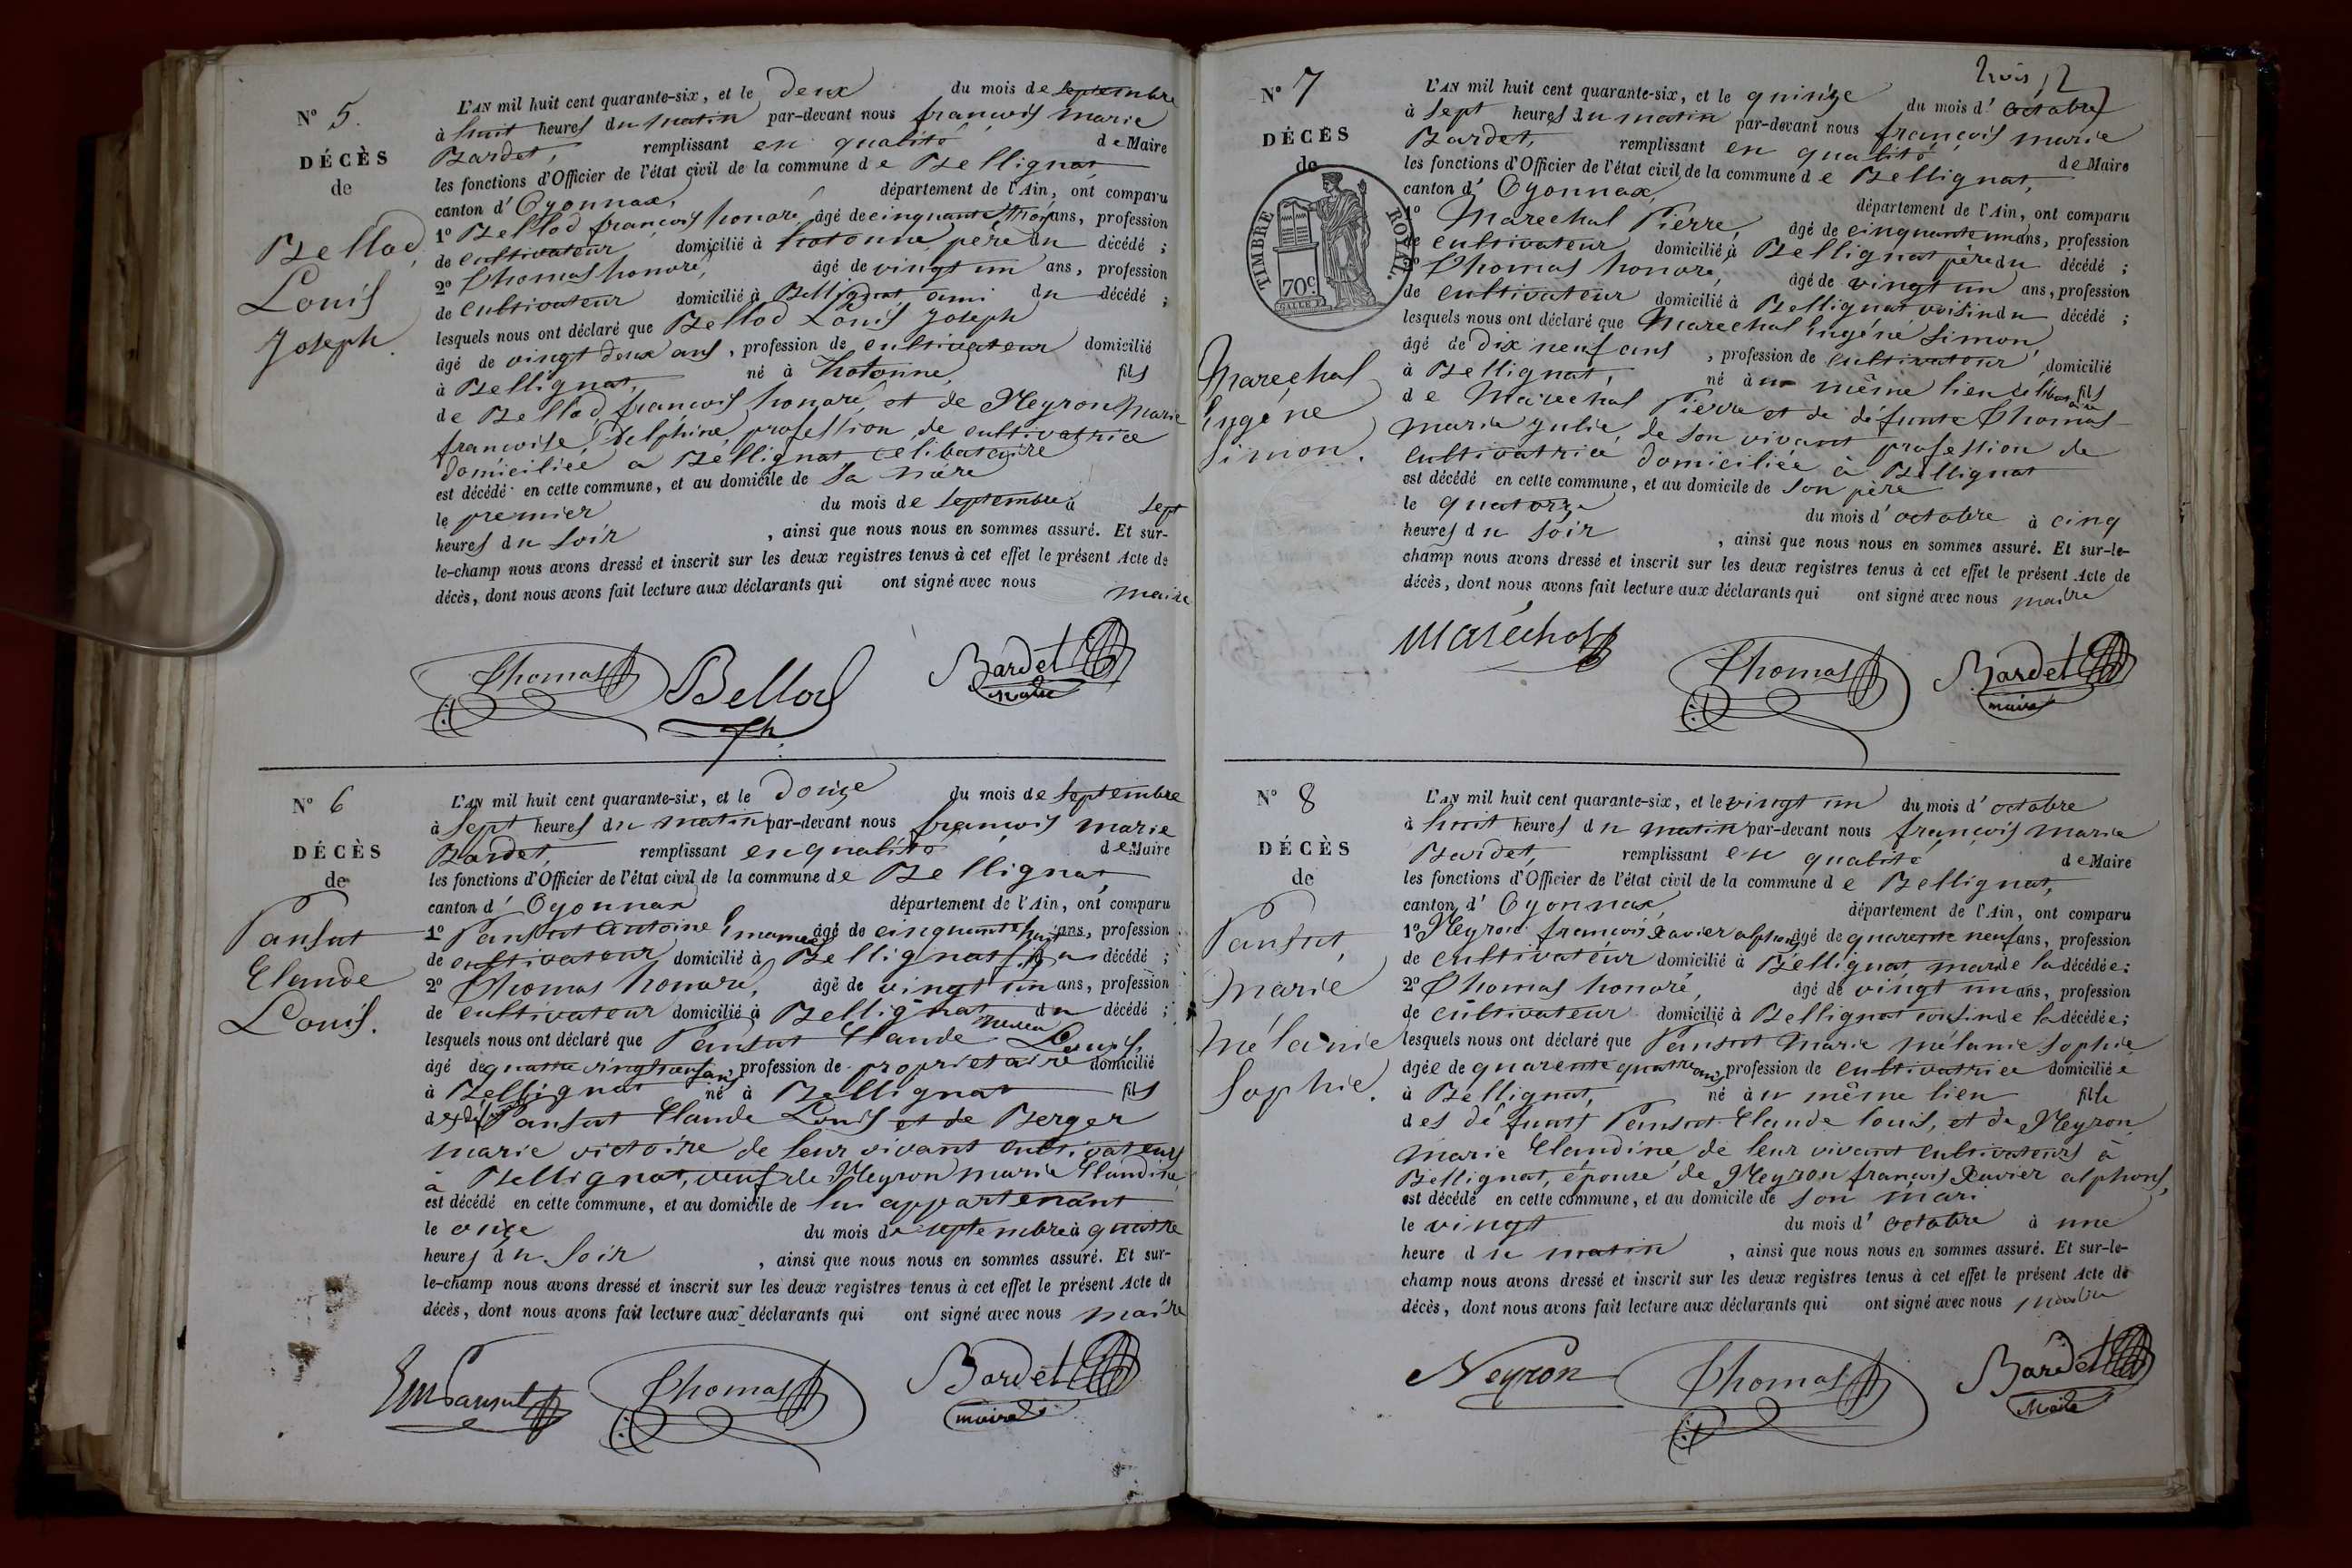 N° 5.
DÉCÈS
de
Bellod
Louis
Joseph.
L'AN mil huit cent quarante-six, et le deux du mois de septembre
à huit heures du matin par-devant nous françois marie
Bardet, remplissant en qualité de Maire
les fonctions d'Officier de l'état civil de la commune de Bellignat,
canton d'Oyonnax, département de l'Ain, ont comparu
1° Bellod françois honoré, âgé de cinquante trois ans, profession
de cultivateur domicilié à hotonne, père du décédé ;
2° Thomas honoré, âgé de vingt un ans, profession
de cultivateur domicilié à Bellignat, ami du décédé ;
lesquels nous ont déclaré que Bellod Louis Joseph
âgé de vingt deux ans, profession de cultivateur domicilié
à Bellignat, né à hotonne, fils
de Bellod françois honoré, et de Neyron Marie
françoise Delphine, profession de cultivatrice
domiciliée a Bellignat célibataire
est décédé en cette commune, et au domicile de sa mère
le premier du mois de septembre à sept
heures du soir, ainsi que nous nous en sommes assuré. Et sur-
le-champ nous avons dressé et inscrit sur les deux registres tenus à cet effet le présent Acte de
décès, dont nous avons fait lecture aux déclarants qui ont signé avec nous maire
Thomas Bellod Bardet
maire
N° 6
DÉCÈS
de
Pansut
Claude
Louis.
L'AN mil huit cent quarante-six, et le douze du mois de septembre
à sept heures du matin par-devant nous françois marie
Bardet, remplissant en qualité de Maire
les fonctions d'Officier de l'état civil de la commune de Bellignat,
canton d'Oyonnax département de l'Ain, ont comparu
1° Pansut Antoine âgé de cinquante ans, profession
de cultivateur domicilié à Bellignat, fils du décédé ;
2° Thomas honoré, âgé de vingt un ans, profession
de cultivateur domicilié à Bellignat, neveu du décédé ;
lesquels nous ont déclaré que Pansut Claude Louis
âgé de quatre vingt ans, profession de propriétaire domicilié
à Bellignat né à Bellignat fils
des Pansut Claude Louis et de Berger
marie victoire de leur vivant cultivateurs
à Bellignat, veuf de Neyron marie Claudine,
est décédé en cette commune, et au domicile de lui appartenant
le onze du mois de septembre à quatre
heures du soir, ainsi que nous nous en sommes assuré. Et sur-
le-champ nous avons dressé et inscrit sur les deux registres tenus à cet effet le présent Acte de
décès, dont nous avons fait lecture aux déclarants qui ont signé avec nous maire
Em Pansut Thomas Bardet
maire
trois
N° 7
DÉCÈS
de
TIMBRE ROYAL.
70c.
Maréchal
Eugéne
Simon.
L'AN mil huit cent quarante-six, et le quinze du mois d'octobre
à sept heures du matin par-devant nous françois marie
Bardet, remplissant en qualité de Maire
les fonctions d'Officier de l'état civil de la commune de Bellignat,
canton d'Oyonnax, département de l'Ain, ont comparu
1° Marechal Pierre, âgé de cinquante un ans, profession
de cultivateur domicilié à Bellignat père du décédé ;
2° Thomas honoré, âgé de vingt un ans, profession
de cultivateur domicilié à Bellignat voisin du décédé ;
lesquels nous ont déclaré que Marechal Eugéné Simon,
âgé de dix neuf ans, profession de cultivateur domicilié
à Bellignat, né au même lieu célibataire fils
de Marechal Pierre et de défunte Thomas
Marie julie, de son vivant profession de
cultivatrice domiciliée à Bellignat
est décédé en cette commune, et au domicile de son père
le quatorze du mois d'octobre à cinq
heures du soir, ainsi que nous nous en sommes assuré. Et sur-le-
champ nous avons dressé et inscrit sur les deux registres tenus à cet effet le présent Acte de
décès, dont nous avons fait lecture aux déclarants qui ont signé avec nous maire
Maréchal Thomas Bardet
maire
N° 8
DÉCÈS
de
Pansut,
Marie
Mélanie
Sophie.
L'AN mil huit cent quarante-six, et le vingt un du mois d'octobre
à huit heures du matin par-devant nous françois marie
Bardet, remplissant en qualité de Maire
les fonctions d'Officier de l'état civil de la commune de Bellignat,
canton d'Oyonnax, département de l'Ain, ont comparu
1° Neyron françois Xavier alphons, âgé de quarente neuf ans, profession
de cultivatéur domicilié à Béllignat, mari de la décédée ;
2° Thomas honoré, âgé de vingt un ans, profession
de cultivateur domicilié à Bellignat cousin de la décédée ;
lesquels nous ont déclaré que Pansut Marie mélanie Sophie
agée de quarente quatre ans, profession de cultivatrice domiciliée
à Bellignat, né au même lieu fille
des défunts Pansut Claude louis, et de Neyron
Marie Claudine de leur vivant cultivateurs à
Bellignat, épouse de Neyron françois Xavier alphons,
est décédé en cette commune, et au domicile de son mari
le vingt du mois d'octobre à une
heure du matin, ainsi que nous nous en sommes assuré. Et sur-le-
champ nous avons dressé et inscrit sur les deux registres tenus à cet effet le présent Acte de
décès, dont nous avons fait lecture aux déclarants qui ont signé avec nous maire
Neyron Thomas Bardet
Maire